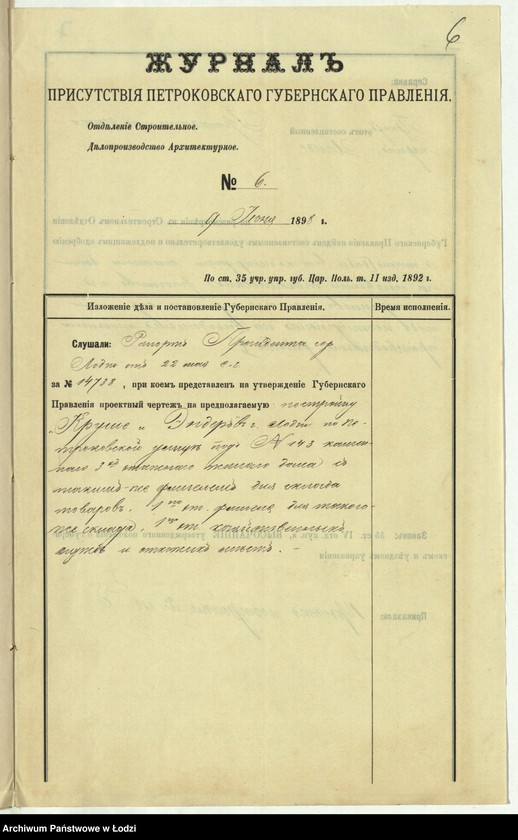 6
ЖУРНАЛЪ
ПРИСУТСТВІЯ ПЕТРОКОВСКАГО ГУБЕРНСКАГО ПРАВЛЕНІЯ.
Отдѣленіе Строительное.
Дѣлопроизводство Архитектурное.
№ 6.
9 Іюня 1898 г.
По ст. 35 учр. упр. губ. Цар. Поль. т. II изд. 1892 г.
Изложеніе дѣла и постановленіе Губернскаго Правленія.
Время исполненія.
Слушали: Рапортъ Президента гор
Лодзи отъ 22 мая с.г
за № 14738, при коемъ представленъ на утвержденіе Губернскаго
Правленія проектный чертежъ на предполагаемую постройку
„Крушe и Эндеръ" г. Лодзи по Пе-
троковской улицѣ подъ № 143 камен-
наго 3хъ этажнаго жилаго дома съ
такимъ-же флигелемъ для склада
товаровъ. 1но эт. флигеля для таково-
же склада, 1но эт. хозяйственныхъ
службъ и отхожихъ мѣстъ. -
Archiwum Państwowe w Łodzi